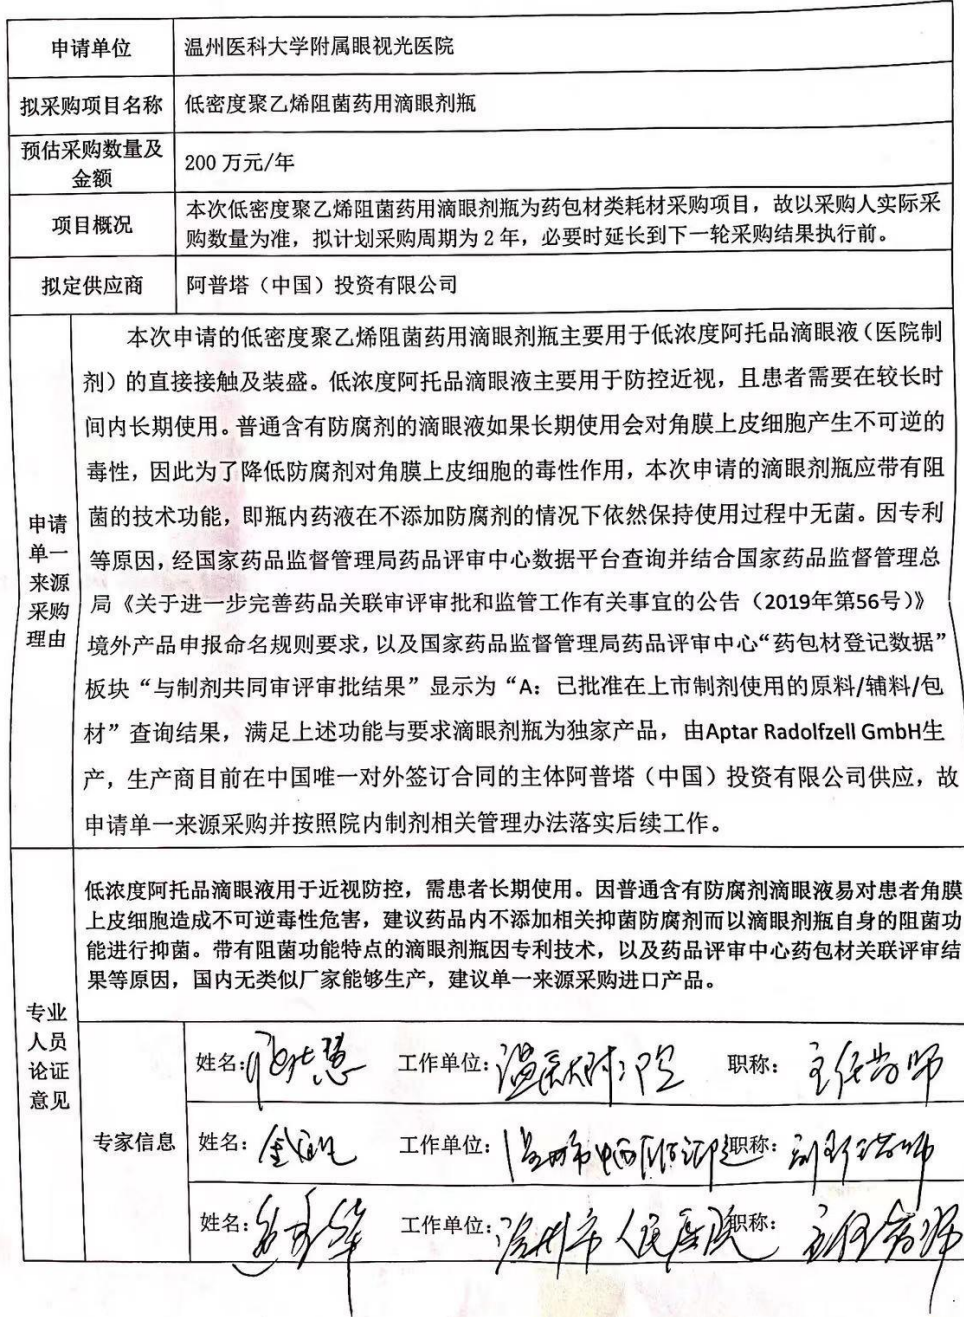 申请单位
温州医科大学附属眼视光医院
拟采购项目名称
低密度聚乙烯阻菌药用滴眼剂瓶
预估采购数量及
金额
200 万元/年
项目概况
本次低密度聚乙烯阻菌药用滴眼剂瓶为药包材类耗材采购项目，故以采购人实际采
购数量为准，拟计划采购周期为 2 年，必要时延长到下一轮采购结果执行前。
拟定供应商
阿普塔（中国）投资有限公司
申请
单一
来源
采购
理由
本次申请的低密度聚乙烯阻菌药用滴眼剂瓶主要用于低浓度阿托品滴眼液（医院制
剂）的直接接触及装盛。低浓度阿托品滴眼液主要用于防控近视，且患者需要在较长时
间内长期使用。普通含有防腐剂的滴眼液如果长期使用会对角膜上皮细胞产生不可逆的
毒性，因此为了降低防腐剂对角膜上皮细胞的毒性作用，本次申请的滴眼剂瓶应带有阻
菌的技术功能，即瓶内药液在不添加防腐剂的情况下依然保持使用过程中无菌。因专利
等原因，经国家药品监督管理局药品评审中心数据平台查询并结合国家药品监督管理总
局《关于进一步完善药品关联审评审批和监管工作有关事宜的公告（2019年第56号）》
境外产品申报命名规则要求，以及国家药品监督管理局药品评审中心“药包材登记数据”
板块“与制剂共同审评审批结果”显示为“A：已批准在上市制剂使用的原料/辅料/包
材”查询结果，满足上述功能与要求滴眼剂瓶为独家产品，由Aptar Radolfzell GmbH生
产，生产商目前在中国唯一对外签订合同的主体阿普塔（中国）投资有限公司供应，故
申请单一来源采购并按照院内制剂相关管理办法落实后续工作。
专业
人员
论证
意见
低浓度阿托品滴眼液用于近视防控，需患者长期使用。因普通含有防腐剂滴眼液易对患者角膜
上皮细胞造成不可逆毒性危害，建议药品内不添加相关抑菌防腐剂而以滴眼剂瓶自身的阻菌功
能进行抑菌。带有阻菌功能特点的滴眼剂瓶因专利技术，以及药品评审中心药包材关联评审结
果等原因，国内无类似厂家能够生产，建议单一来源采购进口产品。
专家信息
姓名： 工作单位：温医大附一院 职称：主任药师
姓名： 工作单位： 职称：副主任药师
姓名： 工作单位：温州市人民医院 职称：主任药师